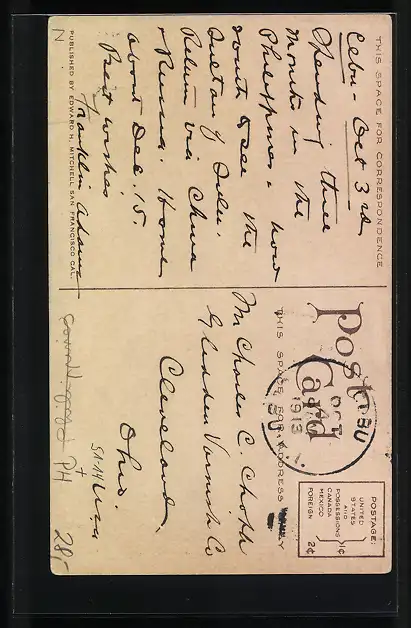 THIS SPACE FOR CORRESPONDENCE
Cebu - Oct 3rd
Spending three
months in the
Philippines. now
south to see the
Sultan of Sulu.
Return via China
& Russia. Home
about Dec. 15.
Best wishes
Franklin Adams
PUBLISHED BY EDWARD H. MITCHELL, SAN FRANCISCO, CAL.
N
Post Card
THIS SPACE FOR ADDRESS ONLY
CEBU
OCT
1913
P.I.
POSTAGE:
UNITED
STATES
AND
POSSESSIONS
CANADA
MEXICO
1¢
FOREIGN
2¢
Mr Charles C.
Glidden Varnish Co
Cleveland,
Ohio.
USA
PH
28,-